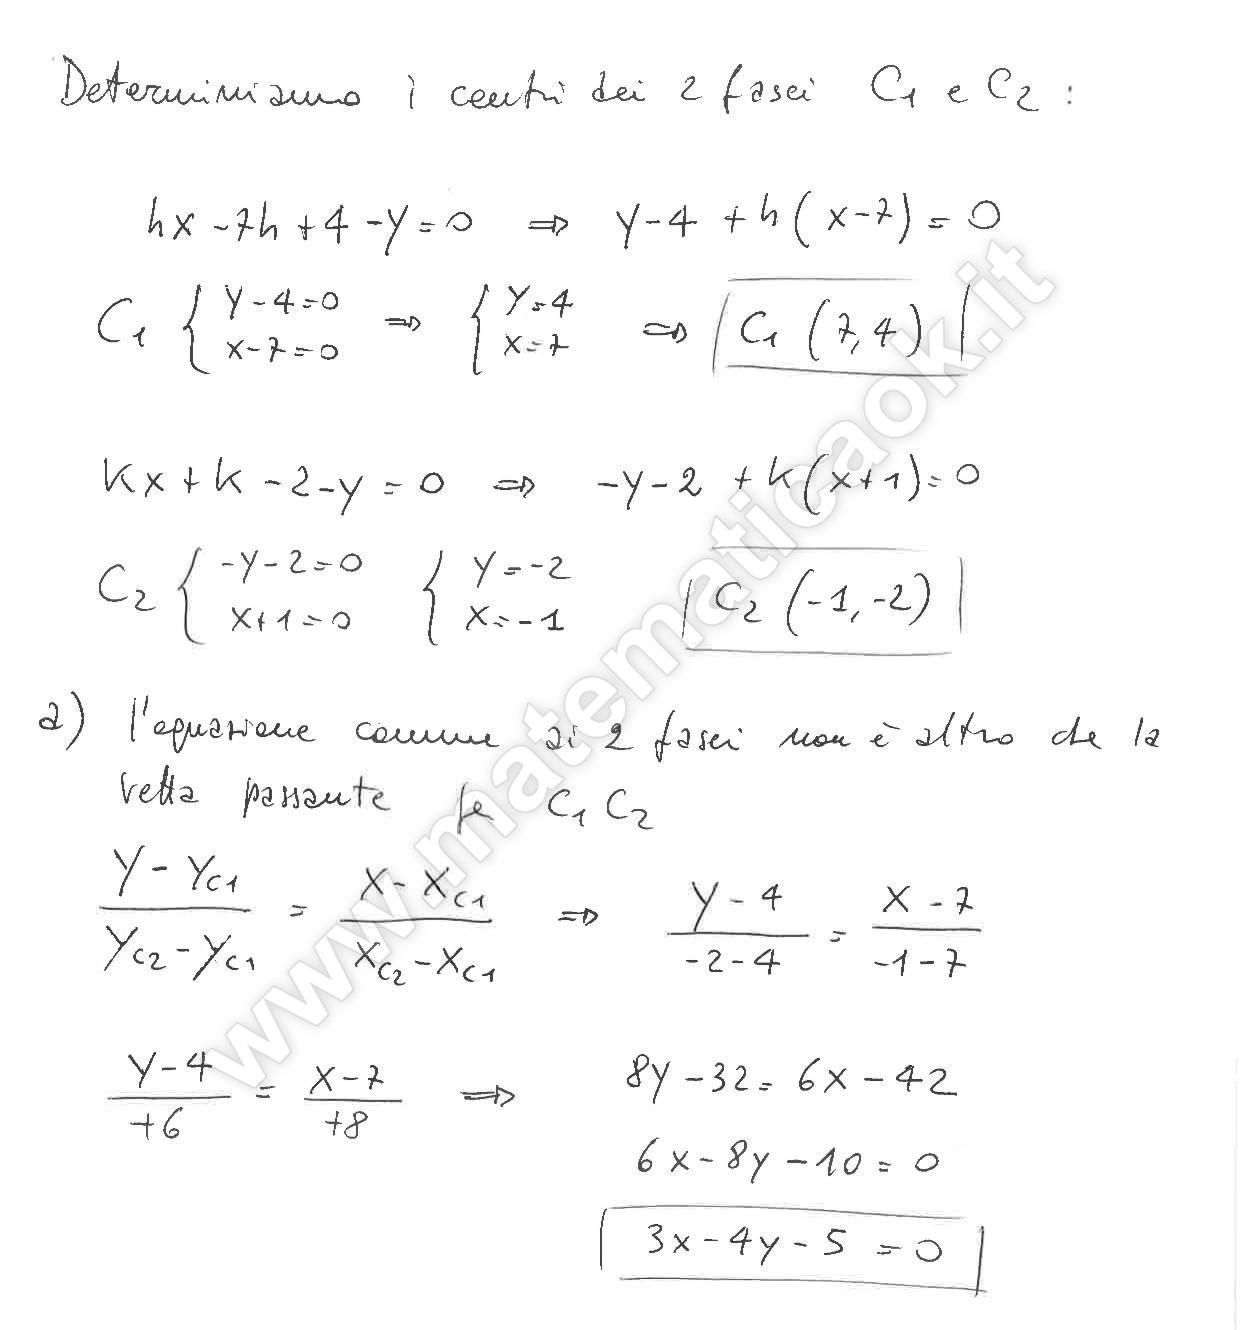 Determiniamo i centri dei 2 fasci C1 e C2 :
hx - 7h + 4 - y = 0 ⇒ y - 4 + h ( x - 7 ) = 0
C1 { y - 4 = 0 ⇒ { y = 4 ⇒ C1 ( 7, 4 )
x - 7 = 0 x = 7
kx + k - 2 - y = 0 ⇒ - y - 2 + k ( x + 1 ) = 0
C2 { - y - 2 = 0 { y = - 2 C2 ( -1, -2 )
x + 1 = 0 x = - 1
a) l'equazione comune ai 2 fasci non è altro che la
retta passante per C1 C2
(y - yC1) / (yC2 - yC1) = (x - xC1) / (xC2 - xC1) ⇒ (y - 4) / (-2 - 4) = (x - 7) / (-1 - 7)
(y - 4) / +6 = (x - 7) / +8 ⇒ 8y - 32 = 6x - 42
6x - 8y - 10 = 0
3x - 4y - 5 = 0
www.matematicaok.it